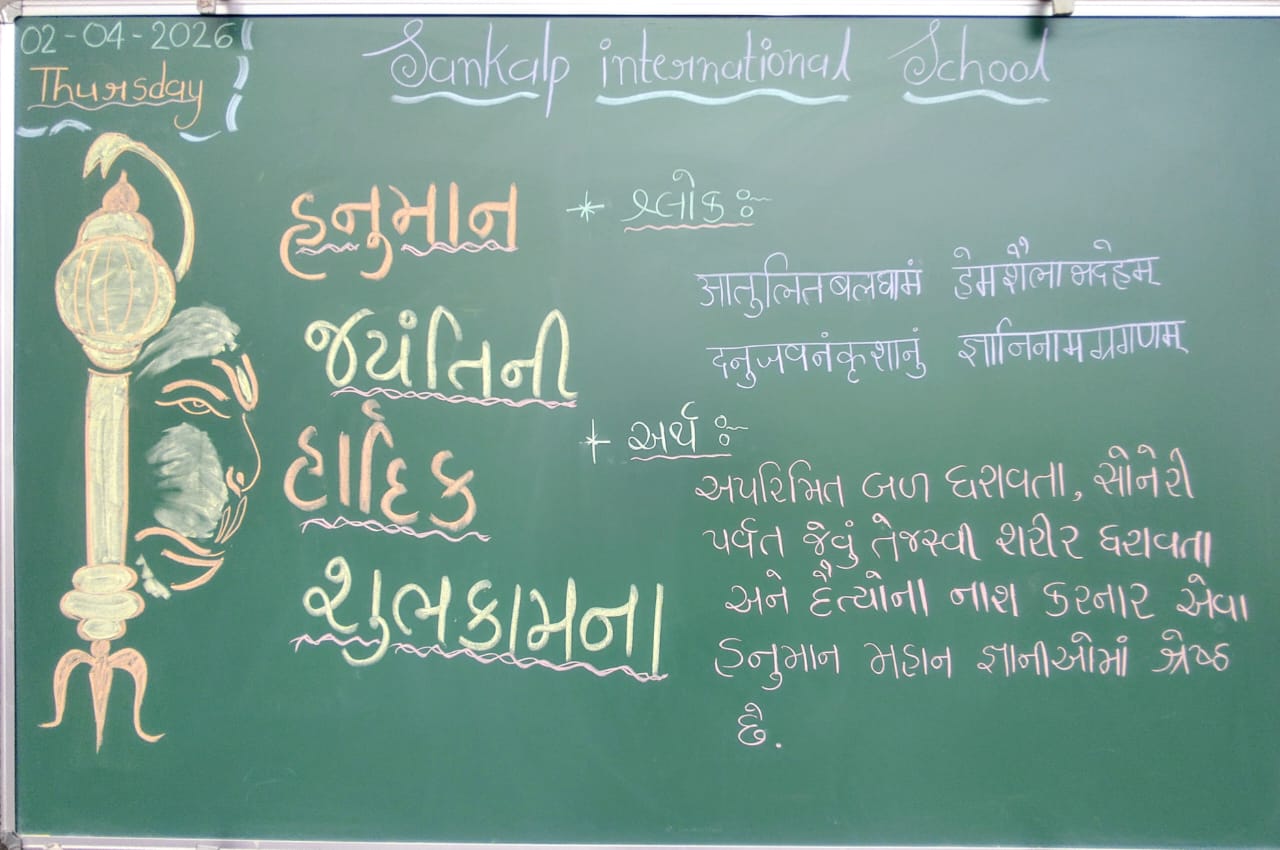 02-04-2026
Thursday
Sankalp international School
હનુમાન
જયંતિની
હાર્દિક
શુભકામના
* શ્લોક :-
आतुलितबलधामं हेमशैलाभदेहम्
दनुजवनंकृशानुं ज्ञानिनामग्रगणम्
+ અર્થ :-
અપરિમિત બળ ધરાવતા, સોનેરી
પર્વત જેવું તેજસ્વી શરીર ધરાવતા
અને દૈત્યોના નાશ કરનાર એવા
હનુમાન મહાન જ્ઞાનીઓમાં શ્રેષ્ઠ
છે.